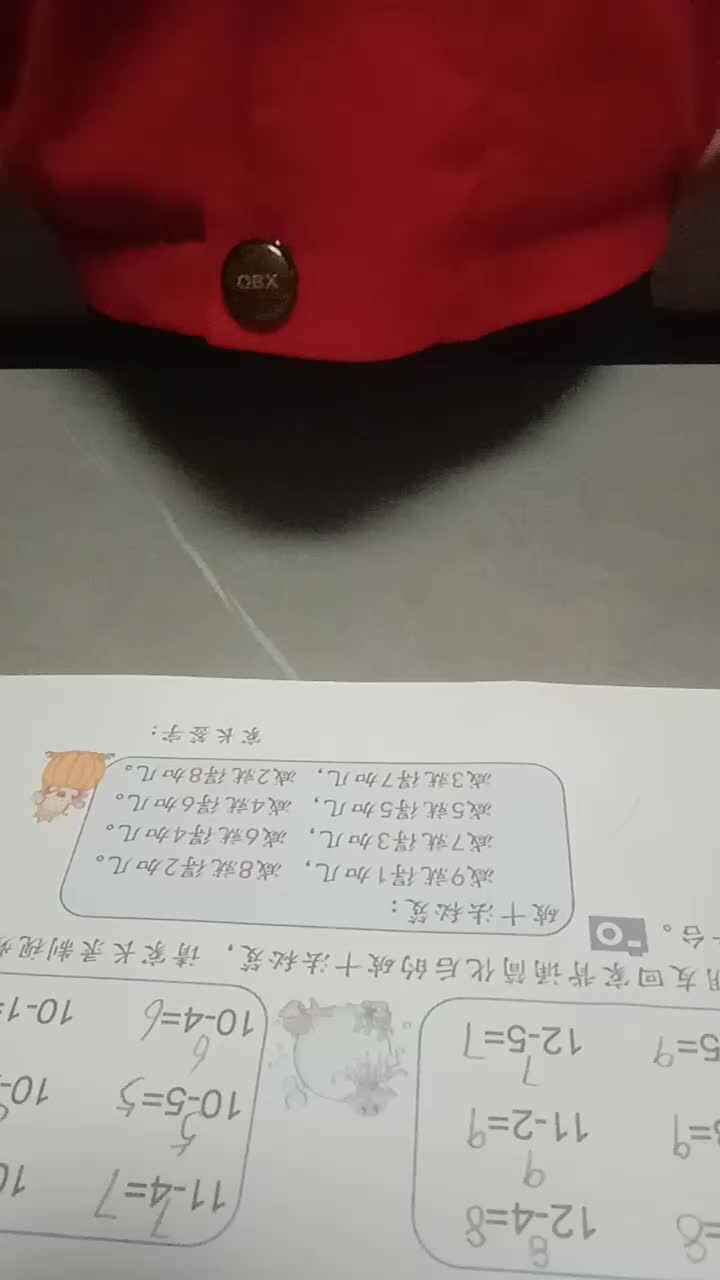 QBX
=8 12-4=8 11-4=7 10
8 7
3=9 11-2=9 10-5=5 10-
9 5
5=9 12-5=7 10-4=6 10-1=
7 6
友回家背诵简化后的破十法秘笈，请家长录制视
台。
破十法秘笈：
减9就得1加几，减8就得2加几。
减7就得3加几，减6就得4加几。
减5就得5加几，减4就得6加几。
减3就得7加几，减2就得8加几。
家长签字：